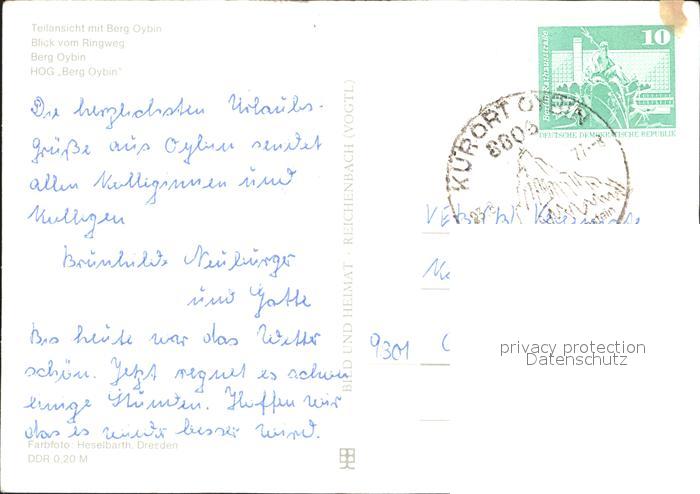 Teilansicht mit Berg Oybin
Blick vom Ringweg
Berg Oybin
HOG „Berg Oybin"
Die herzlichsten Urlaubs-
grüße aus Oybin sendet
allen Kolleginnen und
Kollegen
Brünhilde Neubürger
und Gatte
Bis heute war das Wetter
schön. Jetzt regnet es schon
einige Stunden. Hoffen wir
das es wieder besser wird.
Farbfoto: Heselbarth, Dresden
DDR 0,20 M
BILD UND HEIMAT · REICHENBACH (VOGTL)
10
DEUTSCHE DEMOKRATISCHE REPUBLIK
KURORT OYBIN
8806
9301
privacy protection
Datenschutz